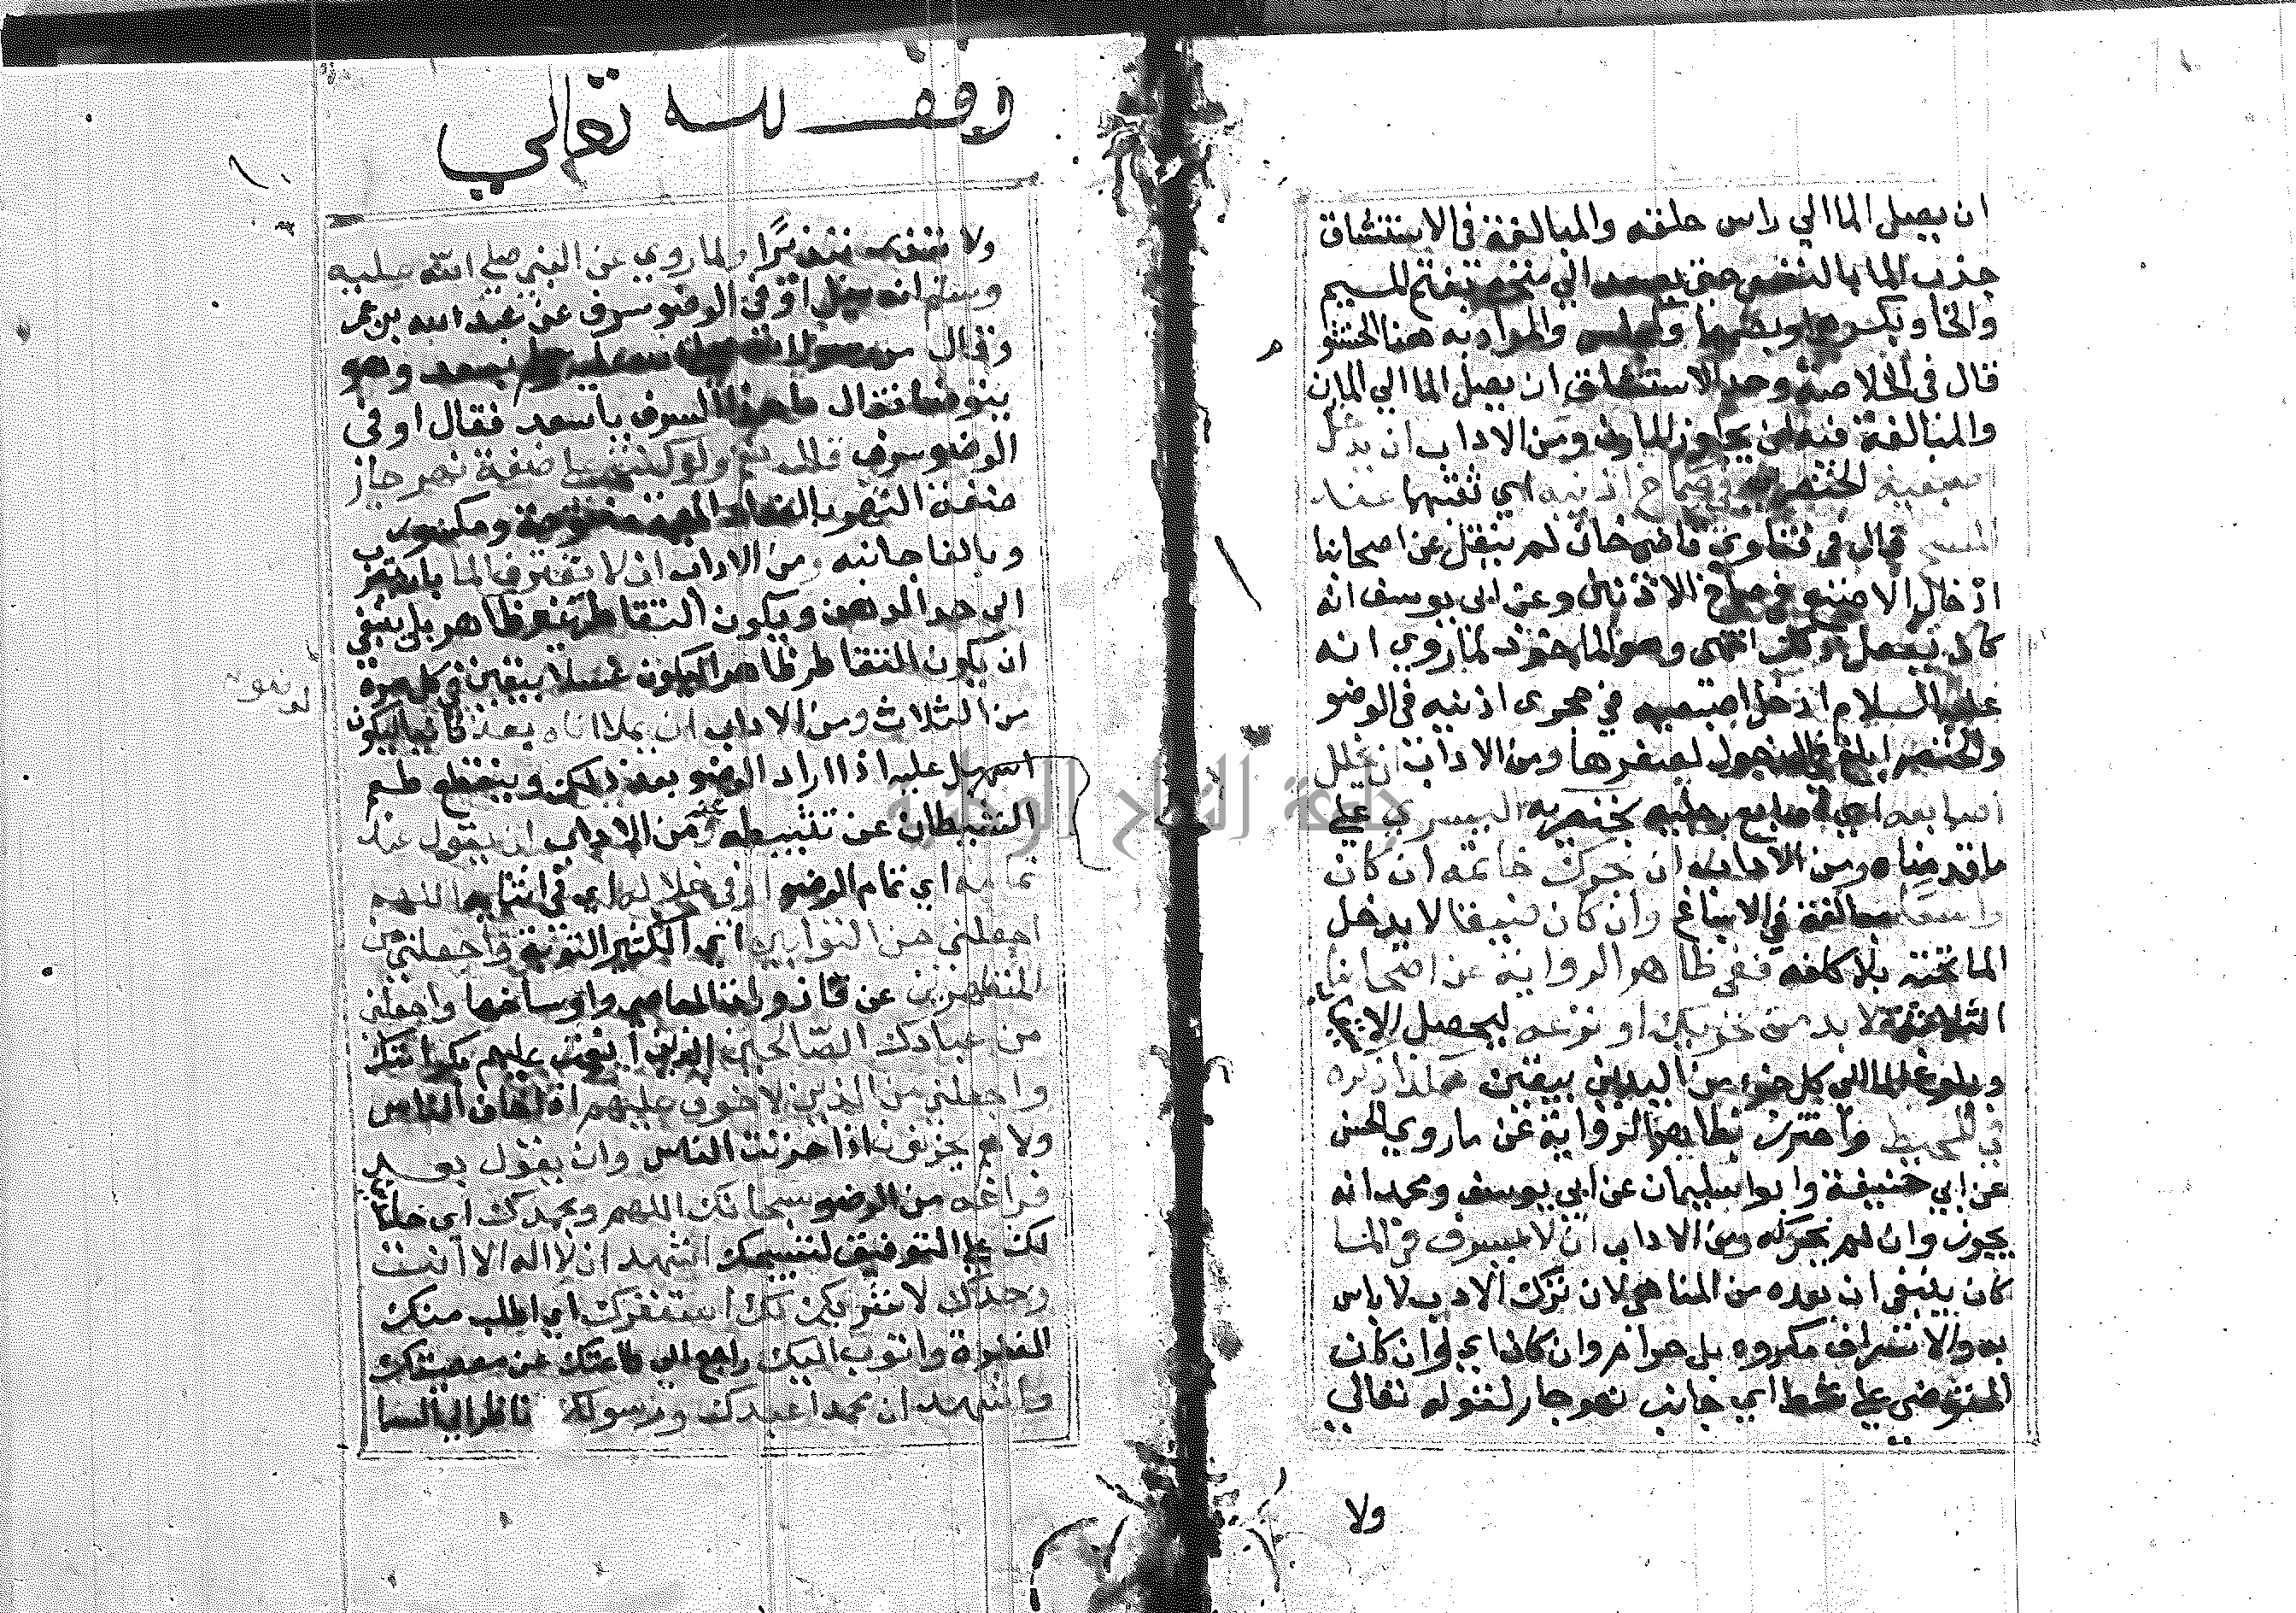 ان يصل الما الي راس حلقه والمبالغة في الاستنشاق
جذب الما بالنفس حتى يصعد الي منخره بفتح الميم
والخا وبكسرهما وبضمهما والمراد به هنا الخيشو
م
قال في الخلاصة وحد الاستنشاق ان يصل الما الي المارن
والمبالغة فيه ان يجاوز المارن ومن الاداب ان يدخل
اصبعيه الخنصر في صماخ اذنيه اي ثقبهما عند
المسح قال في فتاوي قاضيخان لم ينقل عن اصحابنا
ادخال الاصبع في صماخ الاذنين وعن ابي يوسف انه
كان يفعل ذلك انتهى وهو الماخوذ لما روي انه
عليه السلام ادخل اصبعيه في جحرى اذنيه في الوضو
والخنصر ابلغ في الدخول لصغرها ومن الاداب ان يخلل
اصابعه اي اصابع رجليه بخنصر يده اليسري علي
ما قدمناه ومن الاداب ان يحرك خاتمه ان كان
واسعا مبالغة في الاسباغ وان كان ضيقا لا يدخل
الما تحته بلا كلفة ففي ظاهر الرواية عن اصحابنا
الثلاثة لا بد من تحريكه او نزعه ليحصل
وبلوغ الما الي كل جزء من اليدين بيقين هكذا ذكره
في المحيط واحترز بظاهر الرواية عن ما روي الحسن
عن ابي حنيفة وابو سليمان عن ابي يوسف ومحمد انه
يجوز وان لم يحركه ومن الاداب ان لا يسرف في الما
كان ينبغي ان يعده من المناهي لان ترك الادب لا باس
به والاسراف مكروه بل حرام وان كان اي ولو ان كان
المتوضي علي شط اي جانب نهر جار لقوله تعالي
ولا
وقف لله تعالي
١٠
ولا تبذر تبذيرا ولما روي عن النبي صلي الله عليه
وسلم انه سيل او في الوضو سرف عن عبد الله بن عمر
وقال رسول الله صلى الله عليه وسلم بسعد وهو
يتوضا فقال ما هذا السرف يا سعد فقال او في
الوضو سرف قال نعم ولو كنت على ضفة نهر جاز
ضفة النهر بالضاد المعجمة مفتوحة ومكسورة
وبالفا جانبه ومن الاداب ان لا تقتر في الما بان يقرب
الي حد الدهن ويكون التقاطر غير ظاهر بل ينبغي
ان يكون التقاطر ظاهرا ليكون غسلا بيقين في كل مرة
من الثلاث ومن الاداب ان يملا اناه بعد ليكون
اسهل عليه اذا اراد الوضو بعد ذلك وينقطع طمع
الشيطان عن تثبيطه عنه ومن الاداب ان يقول عند
تمامه اي تمام الوضو او في خلاله اي في اثنايه اللهم
اجعلني من التوابين اي الكثير التوبة واجعلني من
المتطهرين عن قاذورات المعاصي واوساخها واجعلني
من عبادك الصالحين الذين انعمت عليهم بكرامتك
واجعلني من الذين لا خوف عليهم اذا خاف الناس
ولا هم يحزنون اذا حزنت الناس وان يقول بعد
فراغه من الوضو سبحانك اللهم وبحمدك اي
لك علي التوفيق لتسبيحك اشهد ان لا اله الا انت
وحدك لا شريك لك استغفرك اي اطلب منك
المغفرة واتوب اليك راجع الي طاعتك عن معصيتك
واشهد ان محمدا عبدك ورسولك ناظرا الي السما